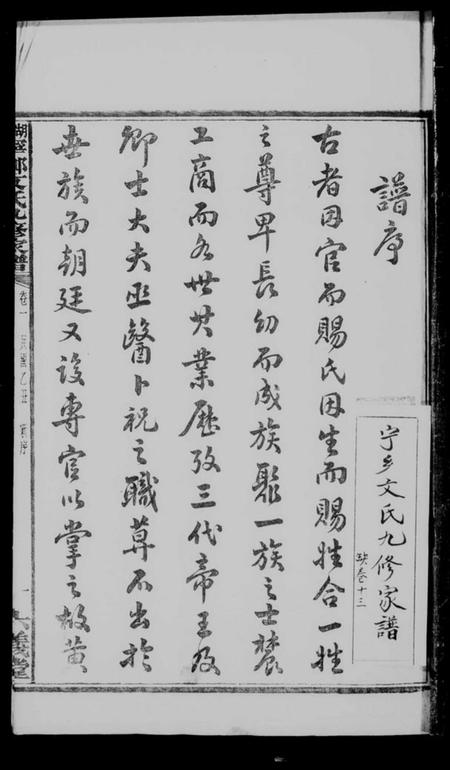 譜序
古者因官而賜氏因生而賜姓合一姓
之尊卑長幼而成族聚一族之士農
工商而各世其業歷攷三代帝王及
卿士大夫巫醫卜祝之職莫不出於
世族而朝廷又設專官以掌之故黃
宁乡文氏九修家谱
缺卷十三
文氏九修家譜
卷一